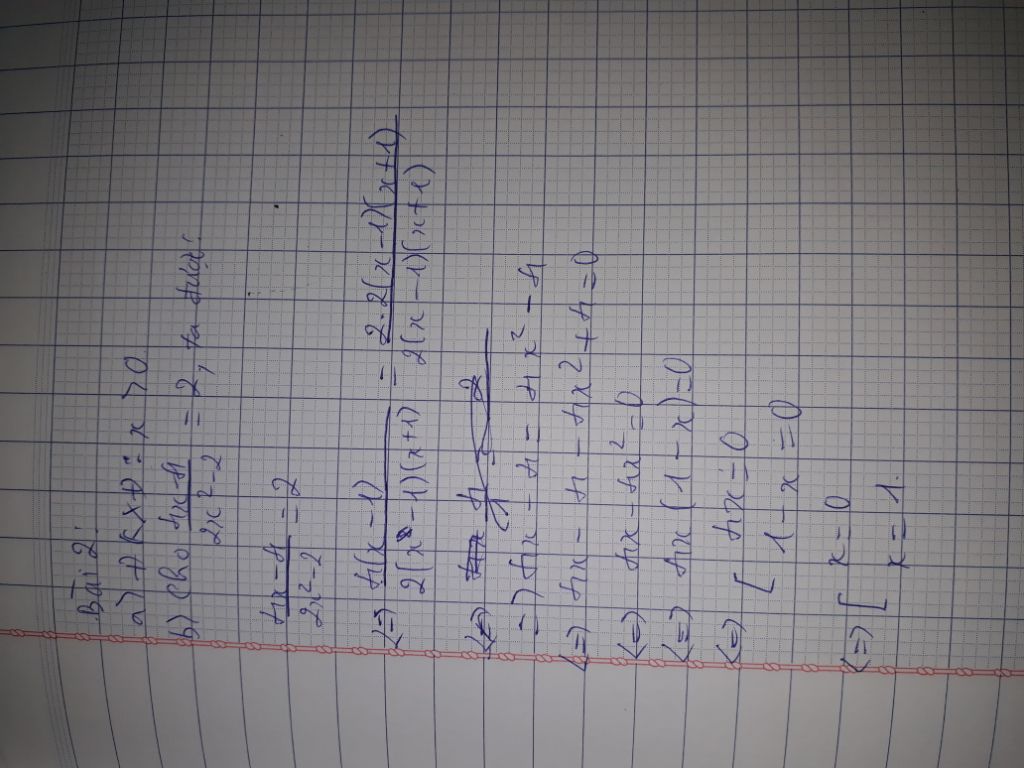 Bài 2:
a) ĐKXĐ: x > 0
b) Cho 4x-4/2x²-2 = 2, ta được:
4x-4/2x²-2 = 2
<=> 4(x-1)/2(x-1)(x+1) = 2.2(x-1)(x+1)/2(x-1)(x+1)
=> 4x - 4 = 4x² - 4
<=> 4x - 4 - 4x² + 4 = 0
<=> 4x - 4x² = 0
<=> 4x(1-x) = 0
<=> [ 4x = 0
1 - x = 0
<=> [ x = 0
x = 1.